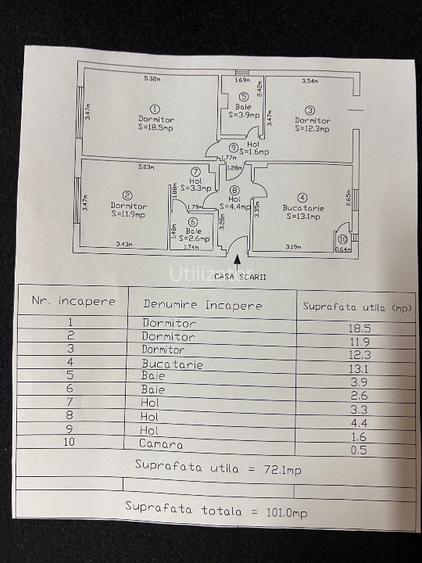 5.32m
1.69m
3.54m
3.47m
1
Dormitor
S=18.5mp
5
Baie
S=3.9mp
2.42m
3.47m
3
Dormitor
S=12.3mp
9
Hol
S=1.6mp
1.77m
1.28m
5.03m
7
Hol
S=3.3mp
8
Hol
S=4.4mp
4
Bucatarie
S=13.1mp
2.65m
3.47m
2
Dormitor
S=11.9mp
1.88m
1.79m
3.28m
3.35m
6
Baie
S=2.6mp
1.49m
1.74m
3.43m
3.19m
10
0.64m
CASA SCARII
Utilizator
Nr. incapere Denumire Incapere Suprafata utila (mp)
1 Dormitor 18.5
2 Dormitor 11.9
3 Dormitor 12.3
4 Bucatarie 13.1
5 Baie 3.9
6 Baie 2.6
7 Hol 3.3
8 Hol 4.4
9 Hol 1.6
10 Camara 0.5
Suprafata utila = 72.1mp
Suprafata totala = 101.0mp